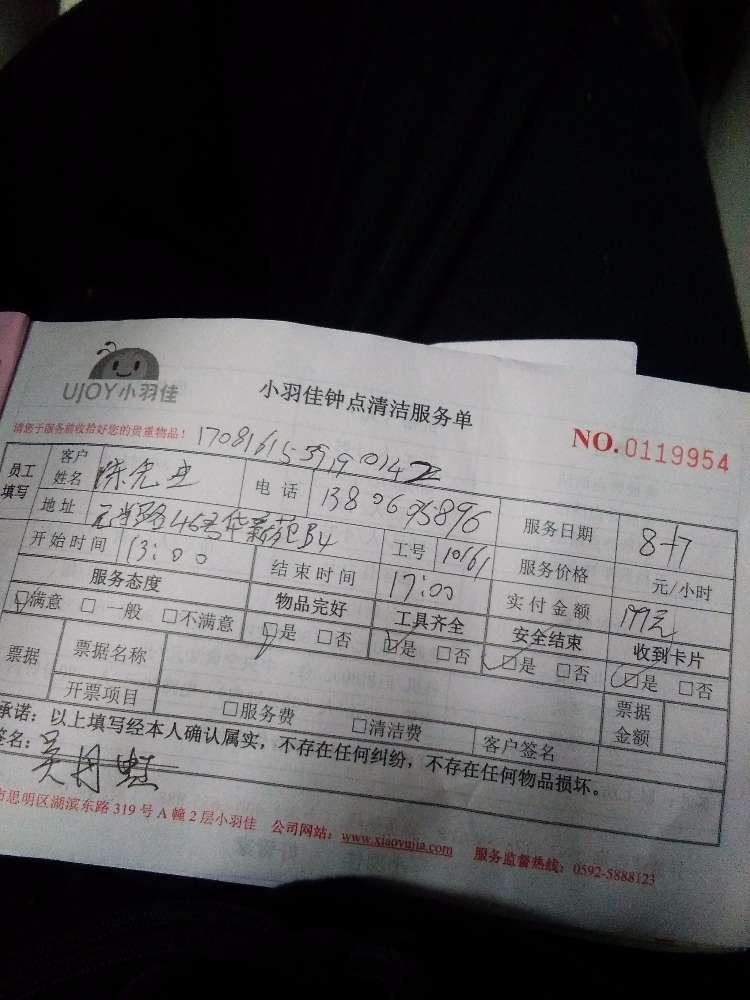 UJOY小羽佳
小羽佳钟点清洁服务单
请您于服务前收拾好您的贵重物品!
NO.0119954
员工填写 客户姓名 陈先生 电话 服务日期 8.17
地址 46号华新苑B4 工号 10161 服务价格 元/小时
开始时间 13:00 结束时间 17:00 实付金额 元
服务态度 物品完好 工具齐全 安全结束 收到卡片
☑满意 □一般 □不满意 ☑是 □否 ☑是 □否 ☑是 □否 ☑是 □否
票据 票据名称 票据金额
开票项目 □服务费 □清洁费 客户签名
承诺:以上填写经本人确认属实,不存在任何纠纷,不存在任何物品损坏。
签名:吴月
市思明区湖滨东路319号A幢2层小羽佳 公司网站:www.xiaoyujia.com 服务监督热线:0592-5888123